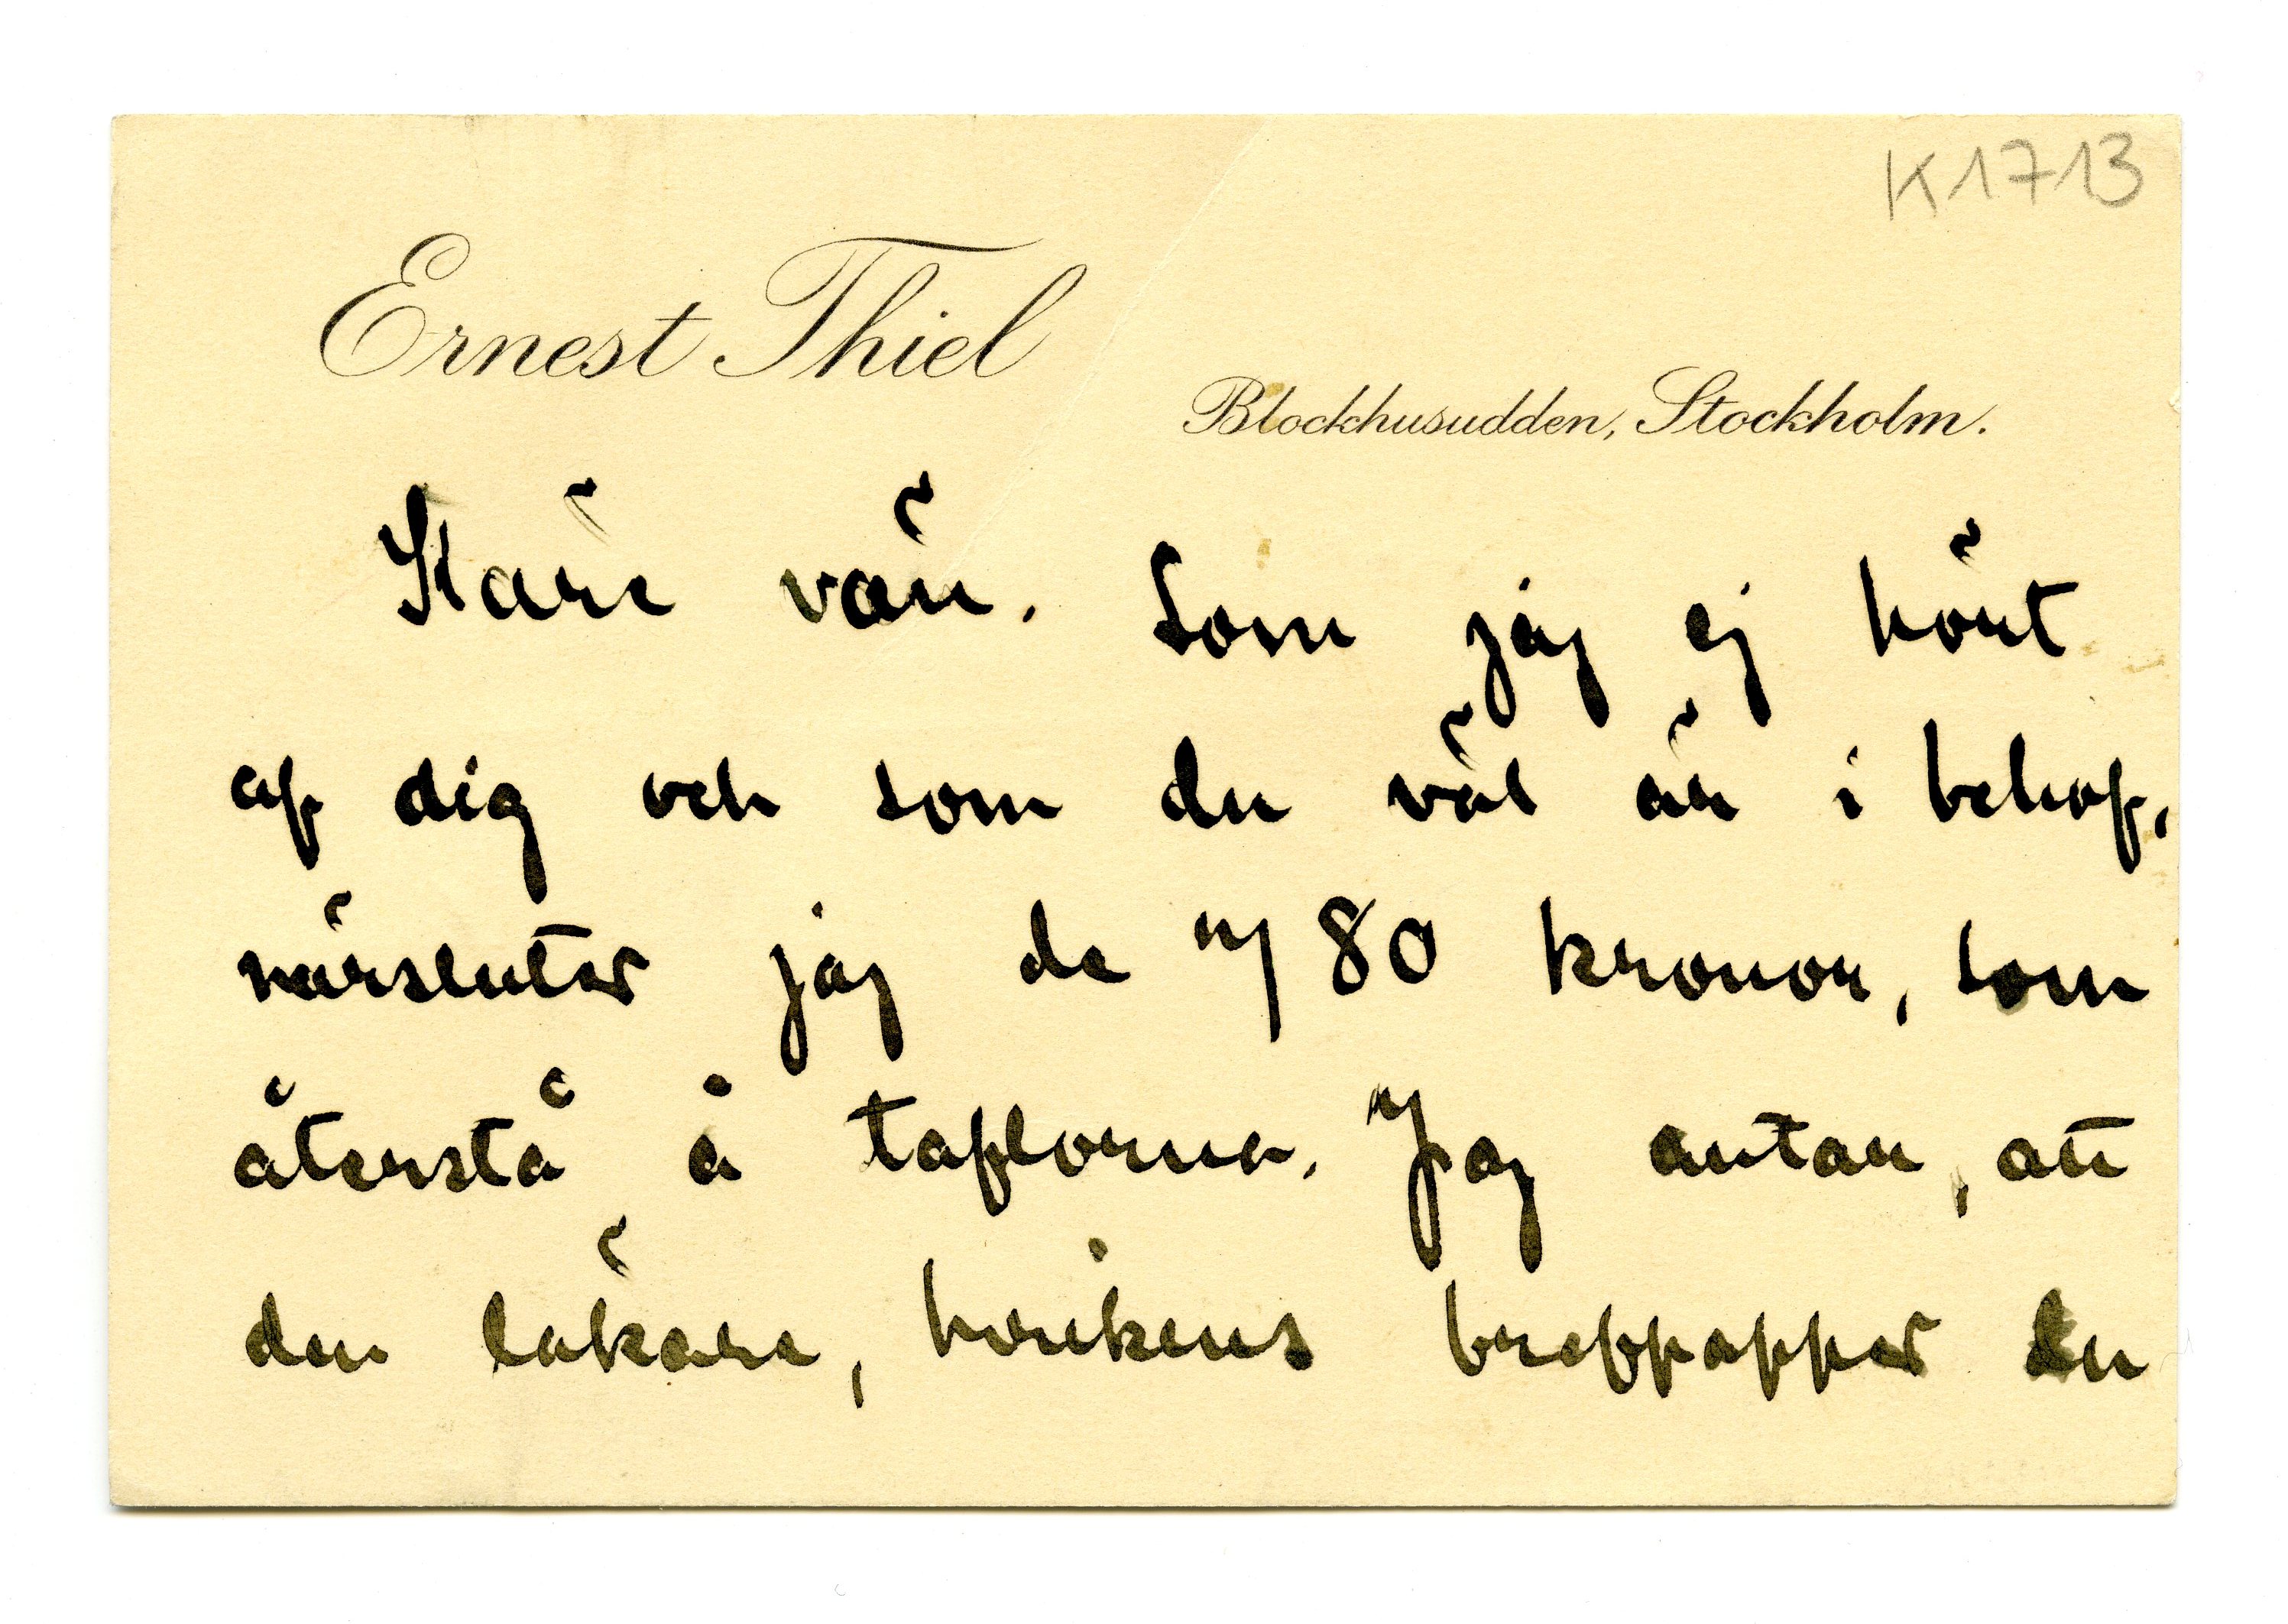 K1713
Ernest Thiel
Blockhusudden, Stockholm.
Käre vän. Som jag ej hört
af dig och som du väl är i behof,
närsluter jag de 780 kronor, som
återstå å taflorna. Jag antar, att
den läkare, hvilkens brefpapper du